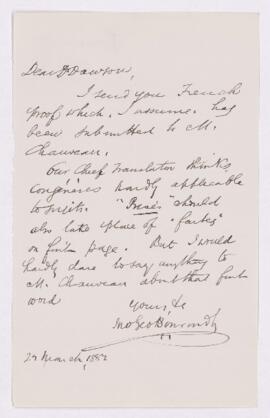 Dear Dr Dawson,
I send you French
proof which, I assume, has
been submitted to M.
Chauveau.
Our Chief Translator thinks
congénères hardly applicable
to sujets. "Beaux" should
also take place of "fortes"
on first page. But I would
hardly dare to say anything to
M. Chauveau about that first
word
Yours &c
Jno Geo Bourinot
29 March, 1882